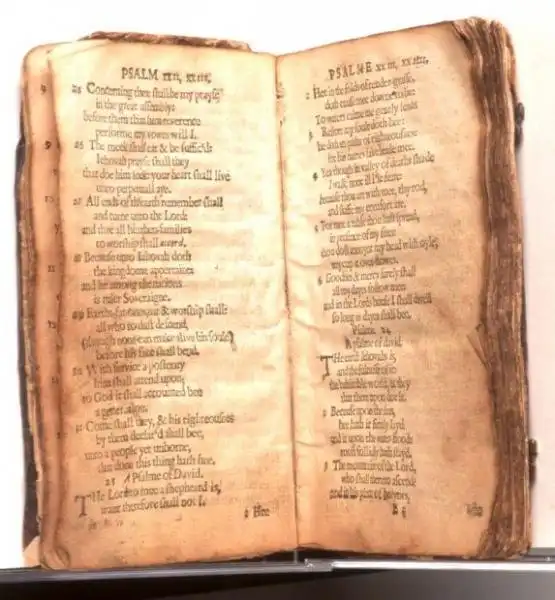 PSALM xxii, xxiii.
25 Concerning thee shall be my prayse
in the great assembly:
before them that him reverence
performe my vowes will I.
26 The meek shall eat & be suffic'd:
Iehovah prayse shall they
that doe him seek: your heart shall live
unto perpetuall aye.
27 All ends of th'earth remember shall
and turne unto the Lord:
and thee all heathen-families
to worship shall accord.
28 Because unto Iehovah doth
the kingdome appertaine:
and he among the nations
is ruler Soveraigne.
29 Earths-fat-ones, eat & worship shall:
all who to dust descend,
(though none can make alive his soule)
before his face shall bend.
30 With service a posterity
him shall attend upon;
to God it shall accounted bee
a generation.
31 Come shall they, & his righteousnes
by them declar'd shall bee,
unto a people yet unborne,
that done this thing hath hee.
23 A Psalme of David.
The Lord to mee a shepheard is,
want therefore shall not I.
2 Hee
PSALME xxiii, xxiv.
2 Hee in the folds of tender-grasse,
doth cause mee downe to lie:
To waters calme me gently leads
3 Restore my soule doth hee:
he doth in paths of righteousnes
for his names sake leade mee.
4 Yea though in valley of deaths shade
I walk, none ill I'le feare:
because thou art with mee, thy rod,
and staffe my comfort are.
5 For mee a table thou hast spread,
in presence of my foes:
thou dost annoynt my head with oyle;
my cup it over-flowes.
6 Goodnes & mercy surely shall
all my dayes follow mee:
and in the Lords house I shall dwell
so long as dayes shall bee.
Psalme 24
A psalme of david.
The earth Iehovahs is,
and the fulnesse of it:
the habitable world, & they
that there upon doe sit.
2 Because upon the seas,
hee hath it firmly layd:
and it upon the water-floods
most sollidly hath stayd.
3 The mountaine of the Lord,
who shall thereto ascend?
and in his place of holynes,